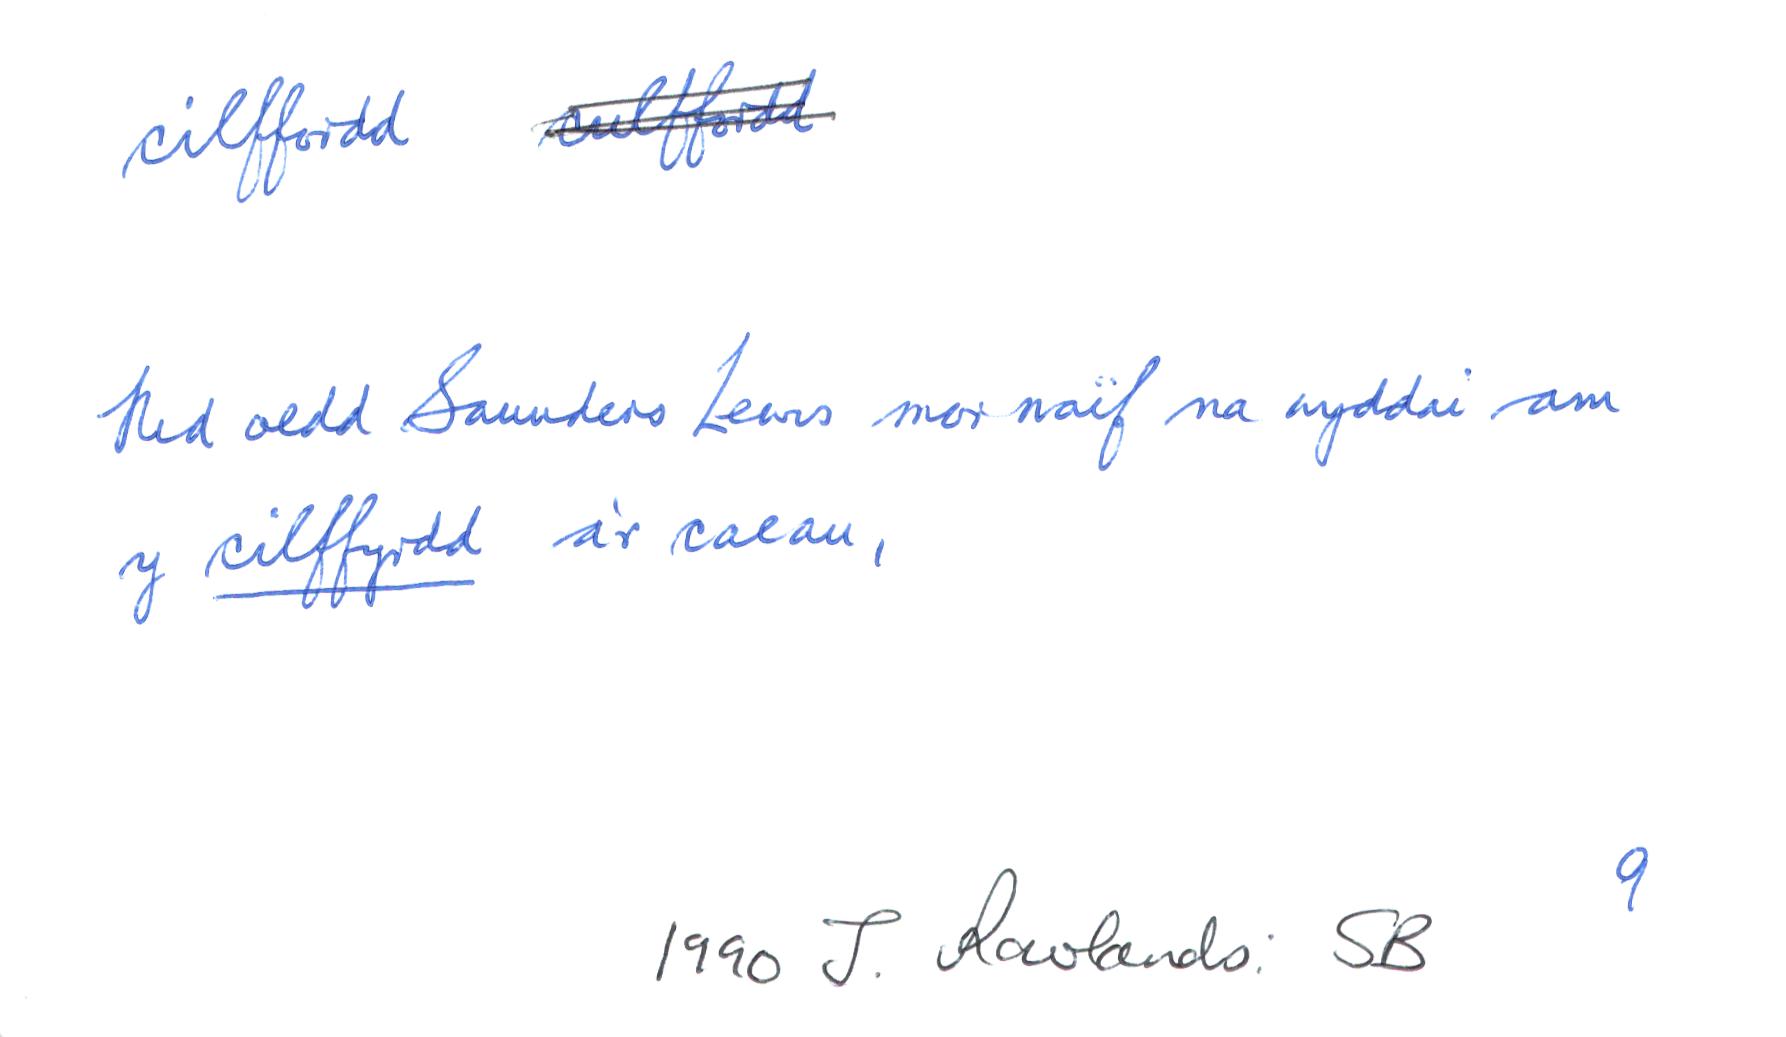 cilffordd culffordd
Nid oedd Saunders Lewis mor naïf na wyddai am
y cilffyrdd a'r caeau,
9
1990 J. Rowlands: SB